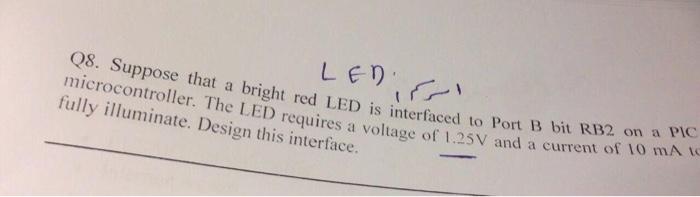 LED
Q8. Suppose that a bright red LED is interfaced to Port B bit RB2 on a PIC
microcontroller. The LED requires a voltage of 1.25V and a current of 10 mA
fully illuminate. Design this interface.